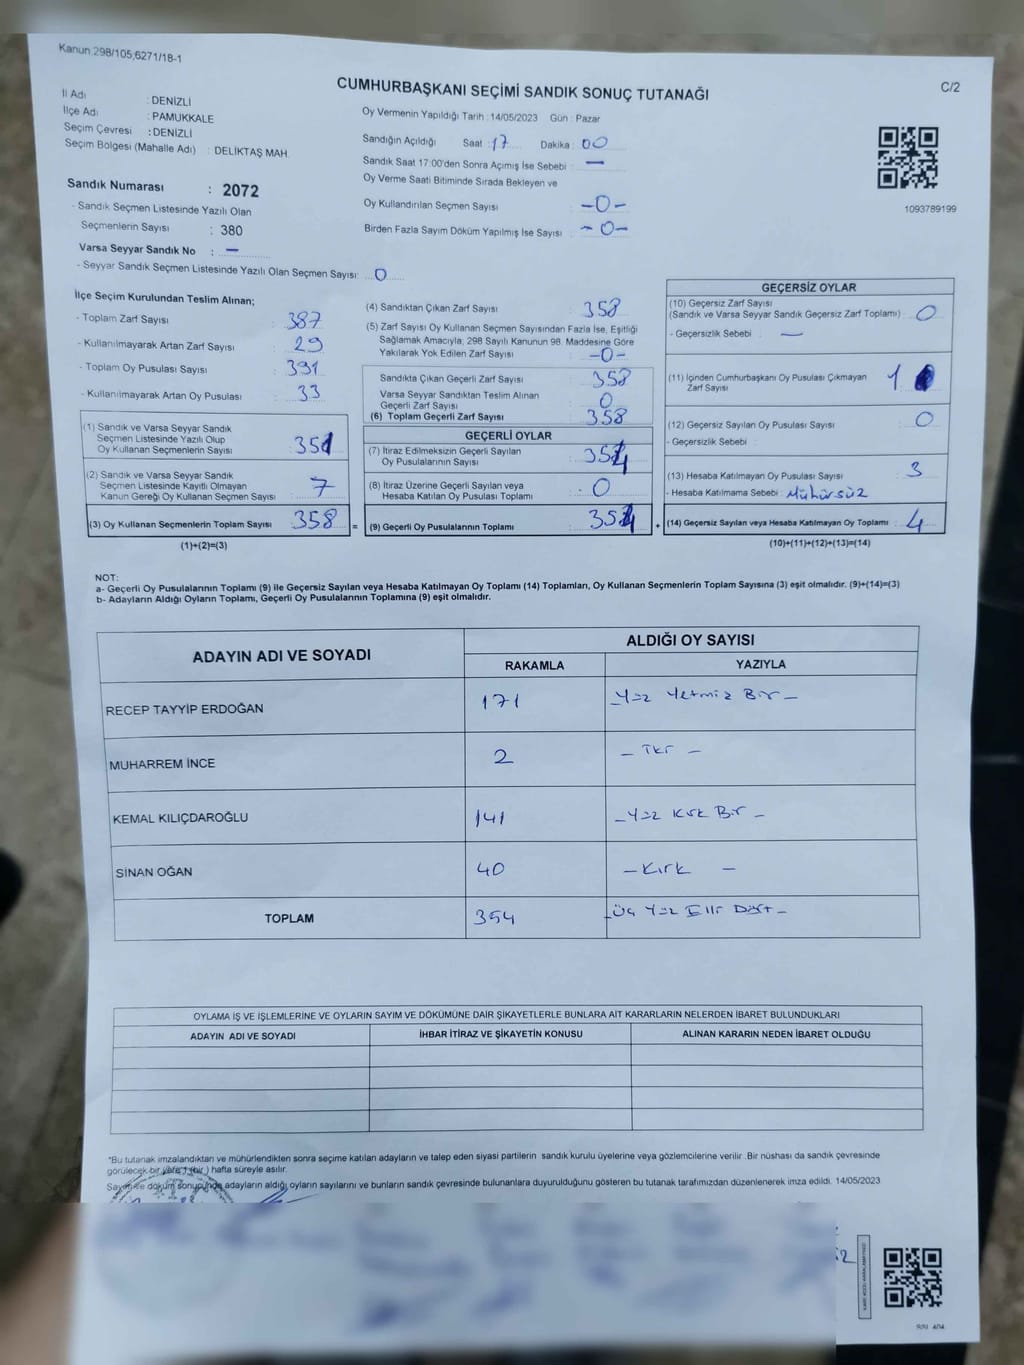 Kanun 298/105,6271/18-1
C/2
CUMHURBAŞKANI SEÇİMİ SANDIK SONUÇ TUTANAĞI
İl Adı : DENİZLİ
İlçe Adı : PAMUKKALE
Seçim Çevresi : DENİZLİ
Seçim Bölgesi (Mahalle Adı) : DELİKTAŞ MAH.
Sandık Numarası : 2072
- Sandık Seçmen Listesinde Yazılı Olan
Seçmenlerin Sayısı : 380
Varsa Seyyar Sandık No : —
- Seyyar Sandık Seçmen Listesinde Yazılı Olan Seçmen Sayısı: 0
Oy Vermenin Yapıldığı Tarih : 14/05/2023 Gün : Pazar
Sandığın Açıldığı Saat : 17 Dakika : 00
Sandık Saat 17:00'den Sonra Açımış İse Sebebi : —
Oy Verme Saati Bitiminde Sırada Bekleyen ve
Oy Kullandırılan Seçmen Sayısı : -0-
Birden Fazla Sayım Döküm Yapılmış İse Sayısı : -0-
1093789199
İlçe Seçim Kurulundan Teslim Alınan;
- Toplam Zarf Sayısı : 387
- Kullanılmayarak Artan Zarf Sayısı : 29
- Toplam Oy Pusulası Sayısı : 391
- Kullanılmayarak Artan Oy Pusulası : 33
(1) Sandık ve Varsa Seyyar Sandık
Seçmen Listesinde Yazılı Olup
Oy Kullanan Seçmenlerin Sayısı : 351
(2) Sandık ve Varsa Seyyar Sandık
Seçmen Listesinde Kayıtlı Olmayan
Kanun Gereği Oy Kullanan Seçmen Sayısı : 7
(3) Oy Kullanan Seçmenlerin Toplam Sayısı : 358
(1)+(2)=(3)
(4) Sandıktan Çıkan Zarf Sayısı : 358
(5) Zarf Sayısı Oy Kullanan Seçmen Sayısından Fazla İse, Eşitliği
Sağlamak Amacıyla, 298 Sayılı Kanunun 98. Maddesine Göre
Yakılarak Yok Edilen Zarf Sayısı : -0-
Sandıkta Çıkan Geçerli Zarf Sayısı : 358
Varsa Seyyar Sandıktan Teslim Alınan
Geçerli Zarf Sayısı : 0
(6) Toplam Geçerli Zarf Sayısı : 358
GEÇERLİ OYLAR
(7) İtiraz Edilmeksizin Geçerli Sayılan
Oy Pusulalarının Sayısı : 354
(8) İtiraz Üzerine Geçerli Sayılan veya
Hesaba Katılan Oy Pusulası Toplamı : 0
= (9) Geçerli Oy Pusulalarının Toplamı : 354
GEÇERSİZ OYLAR
(10) Geçersiz Zarf Sayısı
(Sandık ve Varsa Seyyar Sandık Geçersiz Zarf Toplamı) : 0
- Geçersizlik Sebebi : —
(11) İçinden Cumhurbaşkanı Oy Pusulası Çıkmayan
Zarf Sayısı : 1
(12) Geçersiz Sayılan Oy Pusulası Sayısı : 0
- Geçersizlik Sebebi :
(13) Hesaba Katılmayan Oy Pusulası Sayısı : 3
- Hesaba Katılmama Sebebi : Mühürsüz
+ (14) Geçersiz Sayılan veya Hesaba Katılmayan Oy Toplamı : 4
(10)+(11)+(12)+(13)=(14)
NOT:
a- Geçerli Oy Pusulalarının Toplamı (9) ile Geçersiz Sayılan veya Hesaba Katılmayan Oy Toplamı (14) Toplamları, Oy Kullanan Seçmenlerin Toplam Sayısına (3) eşit olmalıdır. (9)+(14)=(3)
b- Adayların Aldığı Oyların Toplamı, Geçerli Oy Pusulalarının Toplamına (9) eşit olmalıdır.
ADAYIN ADI VE SOYADI ALDIĞI OY SAYISI
RAKAMLA YAZIYLA
RECEP TAYYİP ERDOĞAN 171 -Yüz Yetmiş Bir-
MUHARREM İNCE 2 - İki -
KEMAL KILIÇDAROĞLU 141 -Yüz Kırk Bir-
SİNAN OĞAN 40 -Kırk -
TOPLAM 354 -Üç Yüz Elli Dört-
OYLAMA İŞ VE İŞLEMLERİNE VE OYLARIN SAYIM VE DÖKÜMÜNE DAİR ŞİKAYETLERLE BUNLARA AİT KARARLARIN NELERDEN İBARET BULUNDUKLARI
ADAYIN ADI VE SOYADI İHBAR İTİRAZ VE ŞİKAYETİN KONUSU ALINAN KARARIN NEDEN İBARET OLDUĞU
"Bu tutanak imzalandıktan ve mühürlendikten sonra seçime katılan adayların ve talep eden siyasi partilerin sandık kurulu üyelerine veya gözlemcilerine verilir. Bir nüshası da sandık çevresinde
görülecek bir yere 1 (bir) hafta süreyle asılır.
Sayım ve döküm sonucunda adayların aldığı oyların sayılarını ve bunların sandık çevresinde bulunanlara duyurulduğunu gösteren bu tutanak tarafımızdan düzenlenerek imza edildi. 14/05/2023